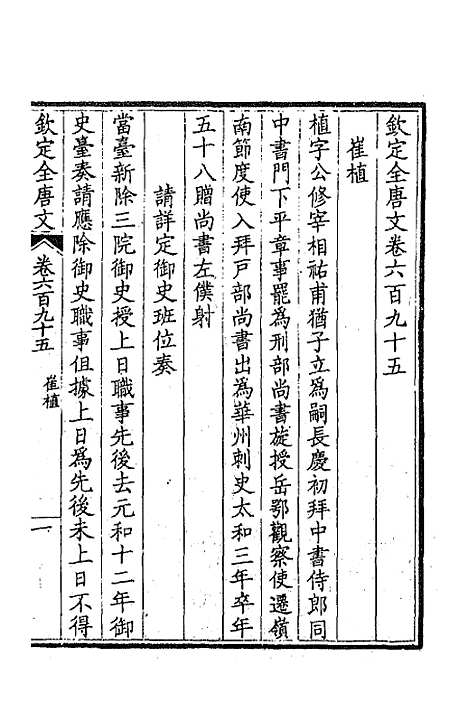 欽定全唐文卷六百九十五
崔植
植字公修宰相祐甫猶子立為嗣長慶初拜中書侍郎同
中書門下平章事罷為刑部尚書旋授岳鄂觀察使遷嶺
南節度使入拜戶部尚書出為華州刺史太和三年卒年
五十八贈尚書左僕射
請詳定御史班位奏
當臺新除三院御史授上日職事先後去元和十二年御
史臺奏請應除御史職事但據上日為先後未上日不得
欽定全唐文 卷六百九十五 崔植 一